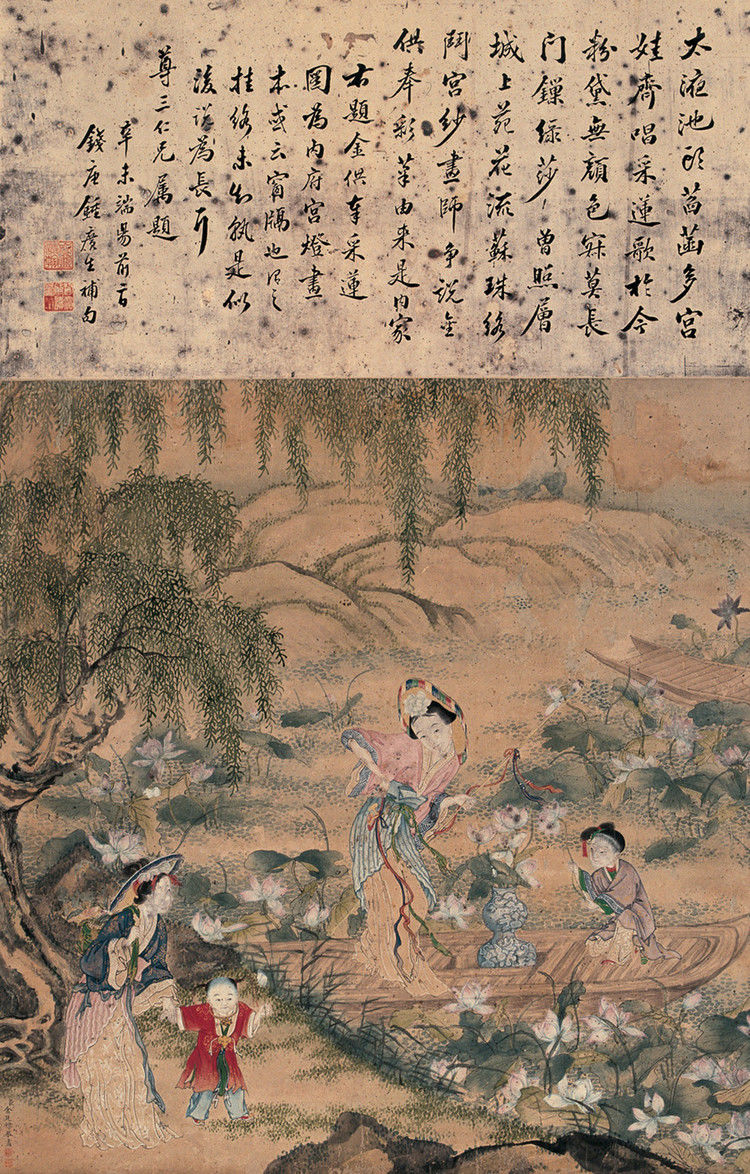 太液池頭菡萏多宮
娃齊唱采蓮歌於今
粉黛無顏色寂莫長
門鏁綠莎 曾照層
城上苑花流蘇珠絡
鬥宮紗畫師爭說金
供奉彩筆由來是内家
右題金供奉采蓮
圖為内府宮燈畫
本或云窗隔也
挂絡未知孰是似
後說為長
尊三仁兄屬題
辛未端陽前一日
錢唐鍾廣生補句